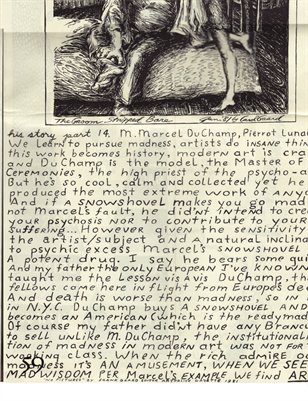 The Groom Stripped Bare
his story part 14. M. Marcel DuChamp, Pierrot Lunar
We learn to pursue madness, artists do insane thin
this work becomes history, modern art is cra
and DuChamp is the model, the Master of
Ceremonies, the high priest of the psycho-a
But he's so cool, calm and collected yet he
produced the most extreme work of any
And if a snowshovel makes you go mad
not Marcel's fault, he didn't intend to cre
your psychosis nor to contribute to your
suffering... However given the sensitivity
the artist/subject and a natural inclina
to psychic excess Marcel's snowshovel
A potent drug. I say he bears some gui
And my father the only European I've known
taught me the lesson vis a vis DuChamp, th
fellows come here in flight from Europe's dea
And death is worse than madness, so
in N.Y.C. DuChamp buys a snowshovel and
becomes an American (which is the readymad
Of course my father didn't have any Branc
to sell unlike M. DuChamp, the institutionali
tion of madness in modern art was not for
working class. When the rich admire
madness it's an amusement, when we see
mad wisdom per Marcel's example we find ar
59